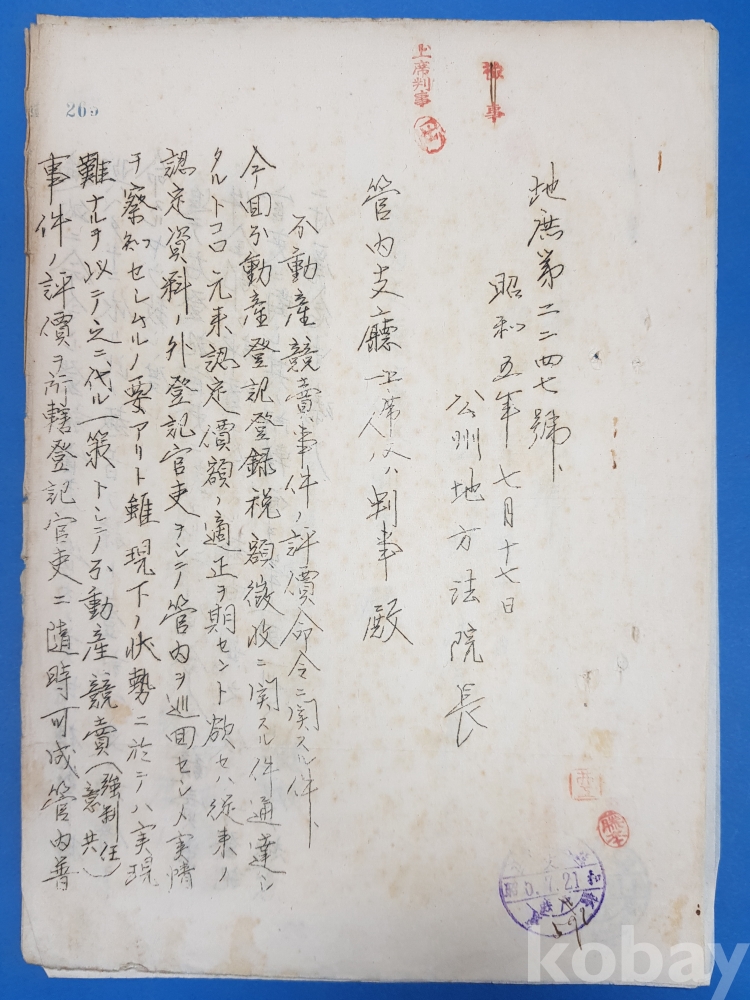 地庶第二二四七號
昭和五年七月十七日
公州地方法院長
管内支廳上席又ハ判事殿
不動産競賣事件ノ評價命令ニ関スル件
今回不動産登記登録税額徴收ニ関スル件通達シ
タルトコロ元来認定價額ノ適正ヲ期セント欲セハ従来ノ
認定資料ノ外登記官吏ヲシテ管内ヲ巡回セシメ実情
ヲ察知セシムルノ要アリト雖現下ノ状勢ニ於テハ実現
難ナルヲ以テ之ニ代ル一策トシテ不動産競賣(強制任意共)
事件ノ評價ヲ所轄登記官吏ニ隨時可成管内普
上席判事
事
藤本
7.21
592
265
kobay